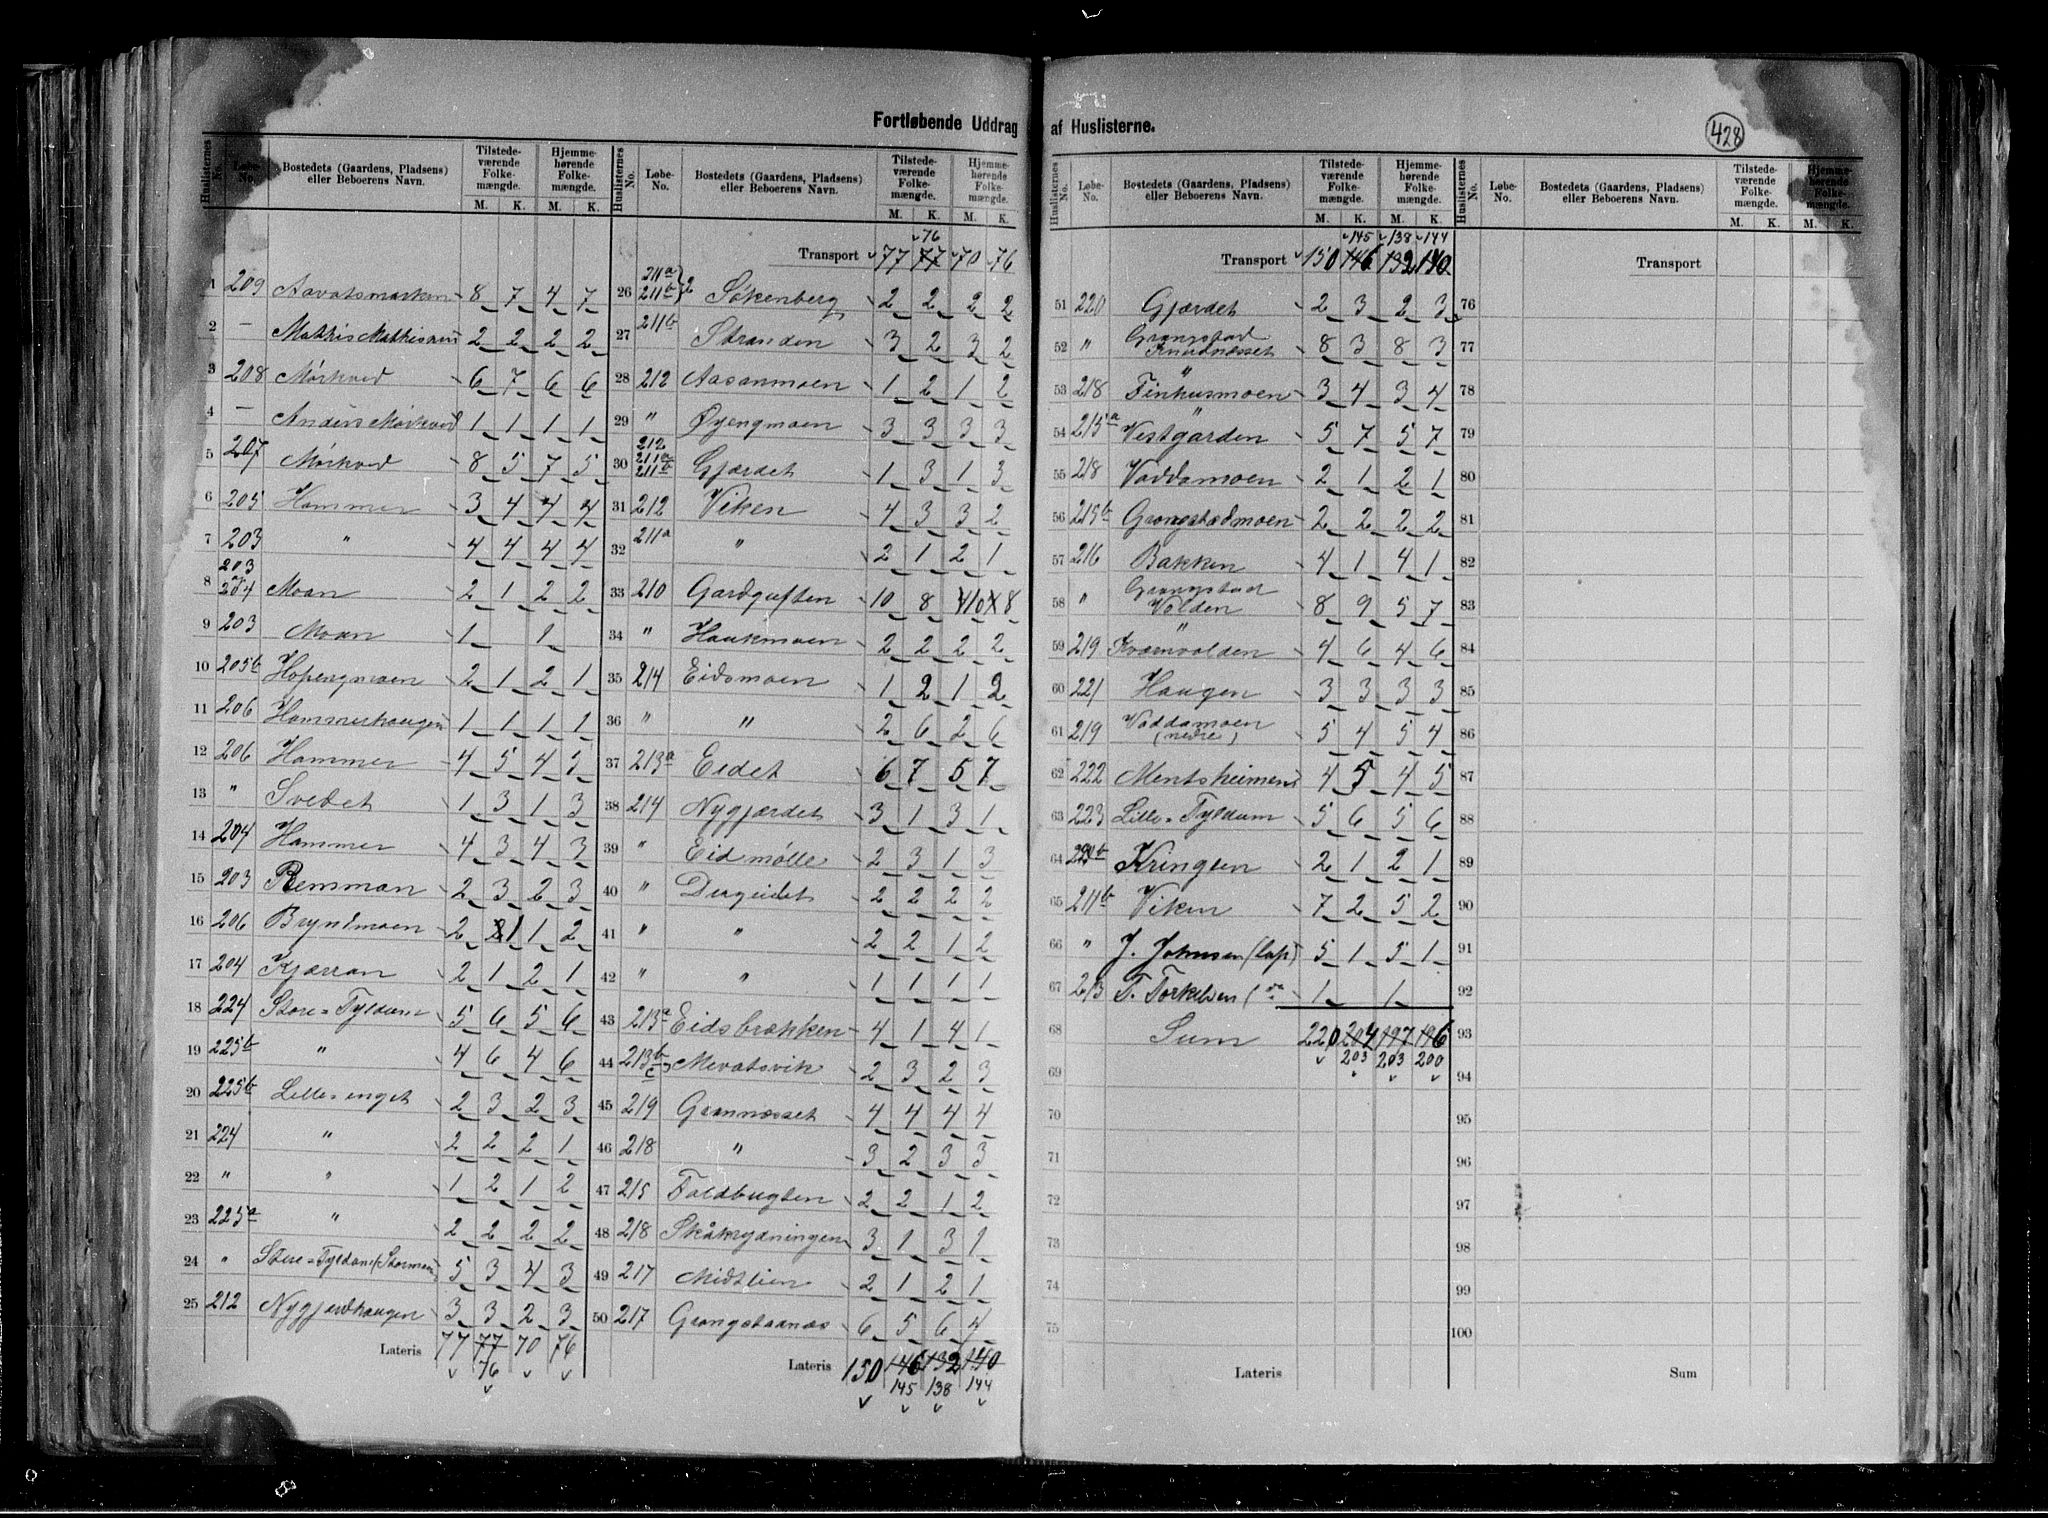 Fortløbende Uddrag af Huslisterne.
428
Huslisternes No. Løbe-No. Bostedets (Gaardens, Pladsens) eller Beboerens Navn. Tilstede-værende Folke-mængde. M. K. Hjemme-hørende Folke-mængde. M. K.
1 209 Aavatsmarken 8 7 4 7
2 — Mathis Mathisen 2 2 2 2
3 208 Mørkved 6 7 6 6
4 — Anders Mørkved 1 1 1 1
5 207 Mørkved 8 5 7 5
6 205 Hammer 3 4 4 4
7 203 " 4 4 4 4
8 203 204 Moan 2 1 2 2
9 203 Moan 1 1
10 205b Hopengmoen 2 1 2 1
11 206 Hammerhaugen 1 1 1 1
12 206 Hammer 4 5 4 5
13 " Svedet 1 3 1 3
14 204 Hammer 4 3 4 3
15 203 Remman 2 3 2 3
16 206 Bryndmoen 2 1 1 2
17 204 Kjærran 2 1 2 1
18 224 Store=Tyldum 5 6 5 6
19 225b " 4 6 4 6
20 225b Lille=enget 2 3 2 3
21 224 " 2 2 2 1
22 " " 1 2 1 2
23 225a " 2 2 2 2
24 " Store=Tyldum (Stormoen) 5 3 4 3
25 212 Nygjærdhaugen 3 3 2 3
Lateris 77 77 70 76
76
Huslisternes No. Løbe-No. Bostedets (Gaardens, Pladsens) eller Beboerens Navn. Tilstede-værende Folke-mængde. M. K. Hjemme-hørende Folke-mængde. M. K.
76
Transport 77 77 70 76
26 211a 211b } 2 Søkenberg 2 2 2 2
27 211b Stranden 3 2 3 2
28 212 Aasanmoen 1 2 1 2
29 " Øyengmoen 3 3 3 3
30 212 211a 211b Gjærdet 1 3 1 3
31 212 Viken 4 3 3 2
32 211a " 2 1 2 1
33 210 Gardguften 10 8 10 8
34 " Haukmoen 2 2 2 2
35 214 Eidsmoen 1 2 1 2
36 " " 2 6 2 6
37 213a Eidet 6 7 5 7
38 214 Nygjærdet 3 1 3 1
39 " Eid mølle 2 3 1 3
40 " Dergeidet 2 2 2 2
41 " " 2 2 1 2
42 " " 1 1 1 1
43 213a Eidsbrækken 4 1 4 1
44 213b c) Mevatsvik 2 3 2 3
45 219 Grannæsset 4 4 4 4
46 218 " 3 2 3 3
47 215 Foldbugten 2 2 1 2
48 218 Skåkrydningen 3 1 3 1
49 217 Midtlien 2 1 2 1
50 217 Grongstadnæs 6 5 6 4
Lateris 150 146 132 140
145 138 144
Huslisternes No. Løbe-No. Bostedets (Gaardens, Pladsens) eller Beboerens Navn. Tilstede-værende Folke-mængde. M. K. Hjemme-hørende Folke-mængde. M. K.
145 138 144
Transport 150 146 132 140
51 220 Gjærdet 2 3 2 3
52 " Grongstad Knudnæsset 8 3 8 3
53 218 " Finhusmoen 3 4 3 4
54 215a " Vestgarden 5 7 5 7
55 218 Vaddamoen 2 1 2 1
56 215b Grongstadmoen 2 2 2 2
57 216 Bakken 4 1 4 1
58 " Grongstad Volden 8 9 5 7
59 219 " Kværnvolden 4 6 4 6
60 221 Haugen 3 3 3 3
61 219 Vaddamoen (nedre) 5 4 5 4
62 222 Mentsheimen 4 5 4 5
63 223 Lille=Tyldum 5 6 5 6
64 Kringlen 2 1 2 1
65 211b Viken 7 2 5 2
66 " J. Johnsen (lap) 5 1 5 1
67 213 T. Torkelsen ( 1 1
68 Sum 220 204 197 196
203 203 200
69
70
71
72
73
74
75
Lateris
Huslisternes No. Løbe-No. Bostedets (Gaardens, Pladsens) eller Beboerens Navn. Tilstede-værende Folke-mængde. M. K. Hjemme-hørende Folke-mængde. M. K.
Transport
76
77
78
79
80
81
82
83
84
85
86
87
88
89
90
91
92
93
94
95
96
97
98
99
100
Sum